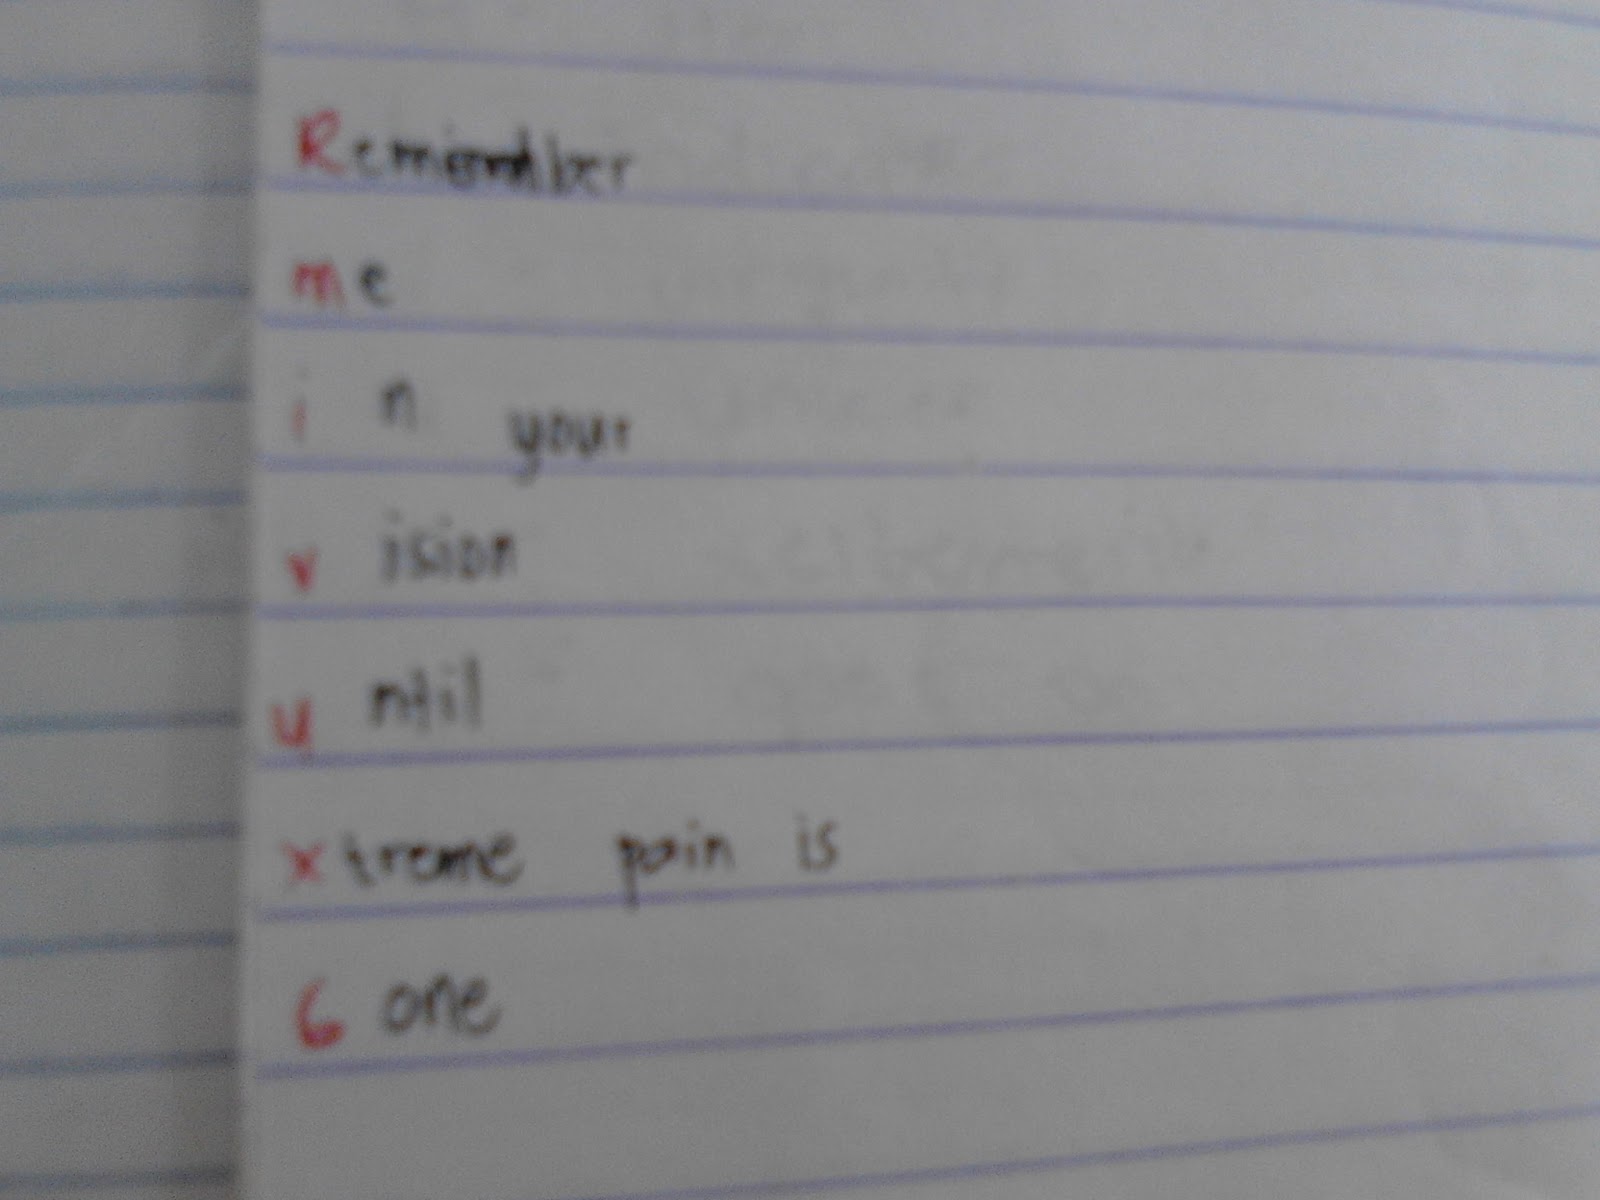 Remember
me
in your
vision
until
xtreme pain is
Gone